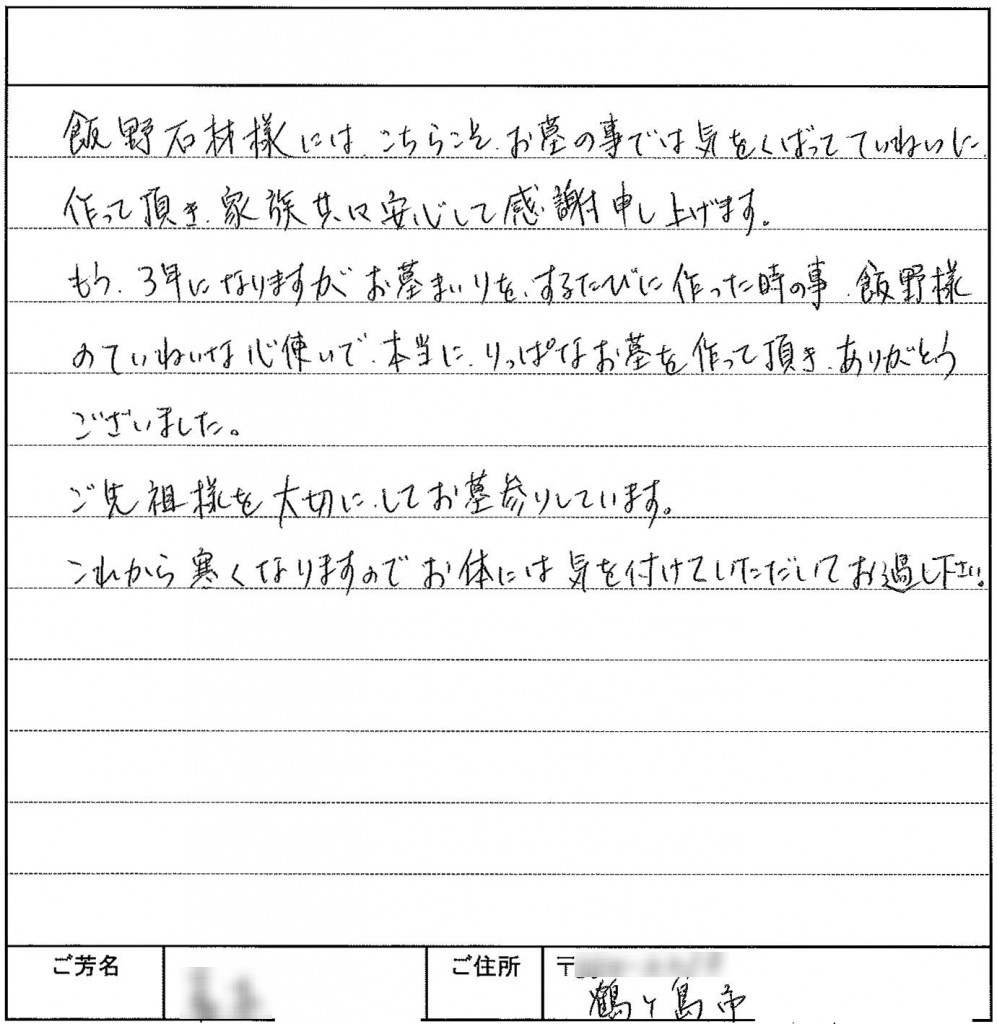 飯野石材様には、こちらこそ、お墓の事では気をくばってていねいに、
作って頂き、家族共に安心して感謝申し上げます。
もう、3年になりますがお墓まいりを、するたびに作った時の事、飯野様
のていねいな心使いで、本当に、りっぱなお墓を作って頂き、ありがとう
ございました。
ご先祖様を大切に、してお墓参りしています。
これから寒くなりますのでお体には気を付けていただいてお過し下さい。
ご芳名
ご住所
〒
鶴ヶ島市